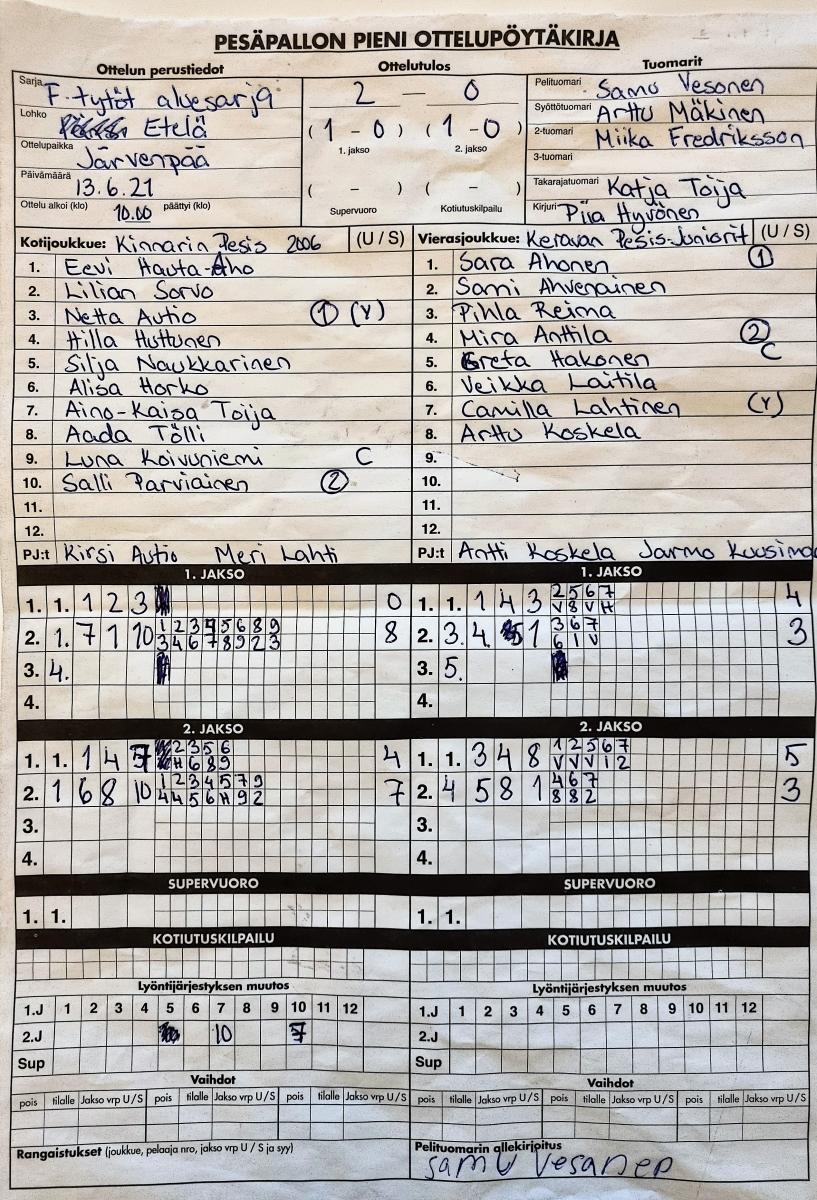 PESÄPALLON PIENI OTTELUPÖYTÄKIRJA
Ottelun perustiedot
Sarja F-tytöt aluesarja
Lohko Etelä
Ottelupaikka Järvenpää
Päivämäärä 13.6.21
Ottelu alkoi (klo) 10.00 päättyi (klo)
Ottelutulos
2 – 0
(1 – 0) (1 – 0)
1. jakso 2. jakso
( – ) ( – )
Supervuoro Kotiutuskilpailu
Tuomarit
Pelituomari Samu Vesonen
Syöttötuomari Arttu Mäkinen
2-tuomari Miika Fredriksson
3-tuomari
Takarajatuomari Katja Toija
Kirjuri Piia Hyvönen
Kotijoukkue: Kinnarin Pesis 2006 (U / S)
1. Eevi Hauta-Aho
2. Lilian Sorvo
3. Netta Autio 1 (V)
4. Hilla Huttunen
5. Silja Naukkarinen
6. Alisa Horko
7. Aino-Kaisa Toija
8. Aada Tölli
9. Luna Koivuniemi C
10. Salli Parviainen 2
11.
12.
PJ:t Kirsi Autio Meri Lahti
Vierasjoukkue: Keravan Pesis-Juniorit (U / S)
1. Sara Ahonen 1
2. Somi Ahvenainen
3. Pihla Reima
4. Mira Anttila 2
5. Greta Hakonen C
6. Veikka Laitila
7. Camilla Lahtinen (V)
8. Arttu Koskela
9.
10.
11.
12.
PJ:t Antti Koskela Jarmo
1. JAKSO
1. 1. 1 2 3 0
2. 1. 7 1 10 1 2 3 4 5 6 8 9 8
3 4 6 7 8 9 2 3
3. 4.
4.
1. JAKSO
1. 1. 1 4 3 2 5 6 7 4
V 8 V H
2. 3. 4. 1 3 6 7 3
6 1 V
3. 5.
4.
2. JAKSO
1. 1. 1 4 7 2 3 5 6 4
H 6 8 9
2. 1 6 8 10 1 2 3 4 5 7 9 7
4 4 5 6 H 9 2
3.
4.
2. JAKSO
1. 1. 3 4 8 1 2 5 6 7 5
V V V 1 2
2. 4 5 8 1 4 6 7 3
8 8 2
3.
4.
SUPERVUORO
1. 1.
SUPERVUORO
1. 1.
KOTIUTUSKILPAILU
KOTIUTUSKILPAILU
Lyöntijärjestyksen muutos
1.J 1 2 3 4 5 6 7 8 9 10 11 12
2.J 10 7
Sup
Lyöntijärjestyksen muutos
1.J 1 2 3 4 5 6 7 8 9 10 11 12
2.J
Sup
Vaihdot
pois tilalle Jakso vrp U / S pois tilalle Jakso vrp U / S pois tilalle Jakso vrp U / S
Vaihdot
pois tilalle Jakso vrp U / S pois tilalle Jakso vrp U / S pois tilalle Jakso vrp U / S
Rangaistukset (joukkue, pelaaja nro, jakso vrp U / S ja syy)
Pelituomarin allekirjoitus
samu vesanen